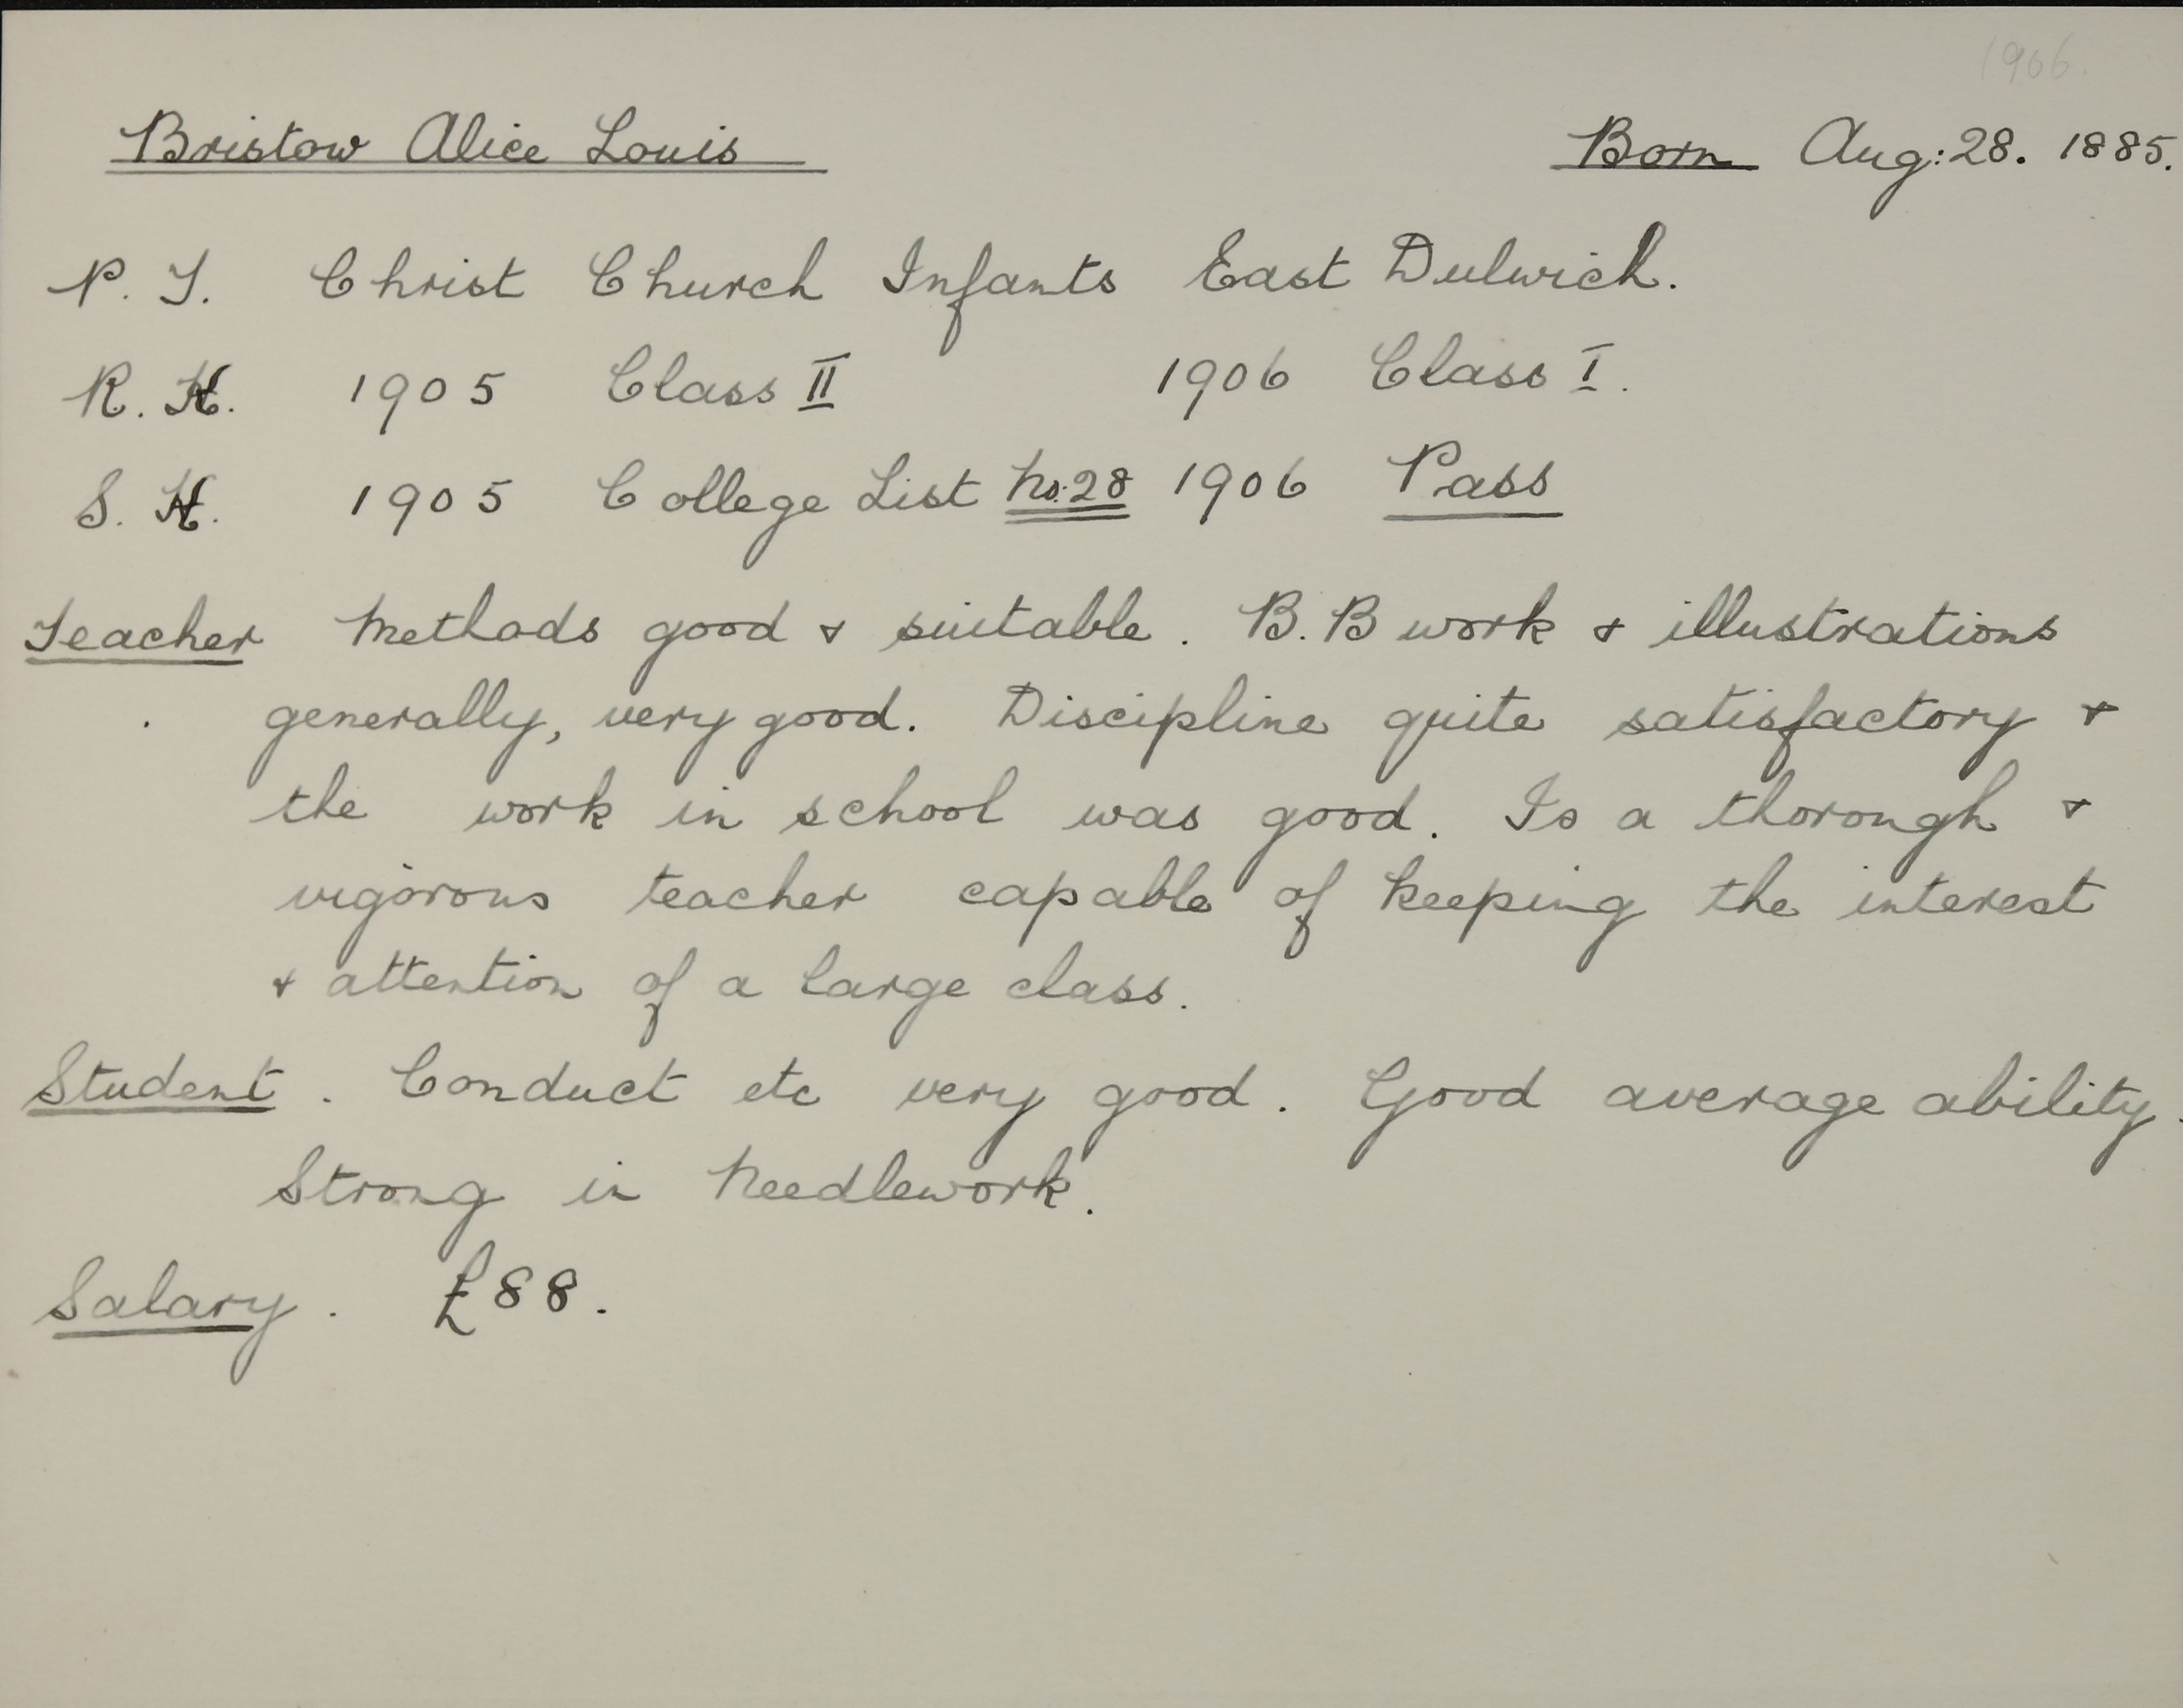 1906.
Bristow Alice Louis Born Aug: 28. 1885.
P. T. Christ Church Infants East Dulwich.
R. K. 1905 Class II 1906 Class I.
S. K. 1905 College List No: 28 1906 Pass
Teacher Methods good & suitable. B. B work & illustrations
generally, very good. Discipline quite satisfactory &
the work in school was good. Is a thorough &
vigorous teacher capable of keeping the interest
& attention of a large class.
Student. Conduct etc very good. Good average ability.
Strong in Needlework.
Salary. £88.